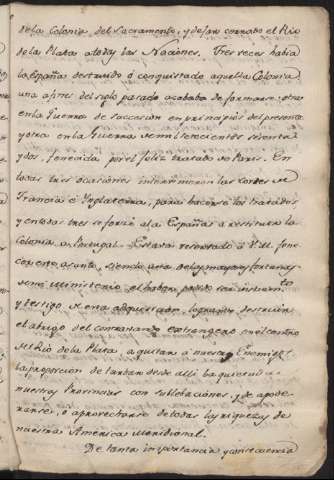 de la Colonia del Sacramento, y dejar cerrado el Rio
de la Plata a todas las Naciones. Tres veces habia
la España destruido ó conquistado aquella Colonia
una a fines del siglo pasado acabada de formarse, otra
en la Guerra de Succesion en principios del presente
y otra en la Guerra de mil setecientos sesenta
y dos, fenecida por el feliz tratado de Paris. En
todas tres ocasiones intervinieron las Cortes de
Francia é Inglaterra, para hacerse los tratados
y en todas tres se forzó a la España a restituir la
Colonia a Portugal. Estava reservado á V.M. fene
cer este asunto, siendo una de las mayores fortunas
de mi Ministerio el haber podido ser instrum.to
y testigo de esta adquisicion, logrando destruir
el abrigo del contravando extrangero en el centro
del Rio de la Plata, a quitar á nuestros Enemigos
la proporcion de turbar desde alli la quietud de
nuestras Provincias con sublevaciones, y de apode
rarse, ó aprovecharse de todas las riquezas de
nuestra America Meridional.
De tanta importancia y consecuencia